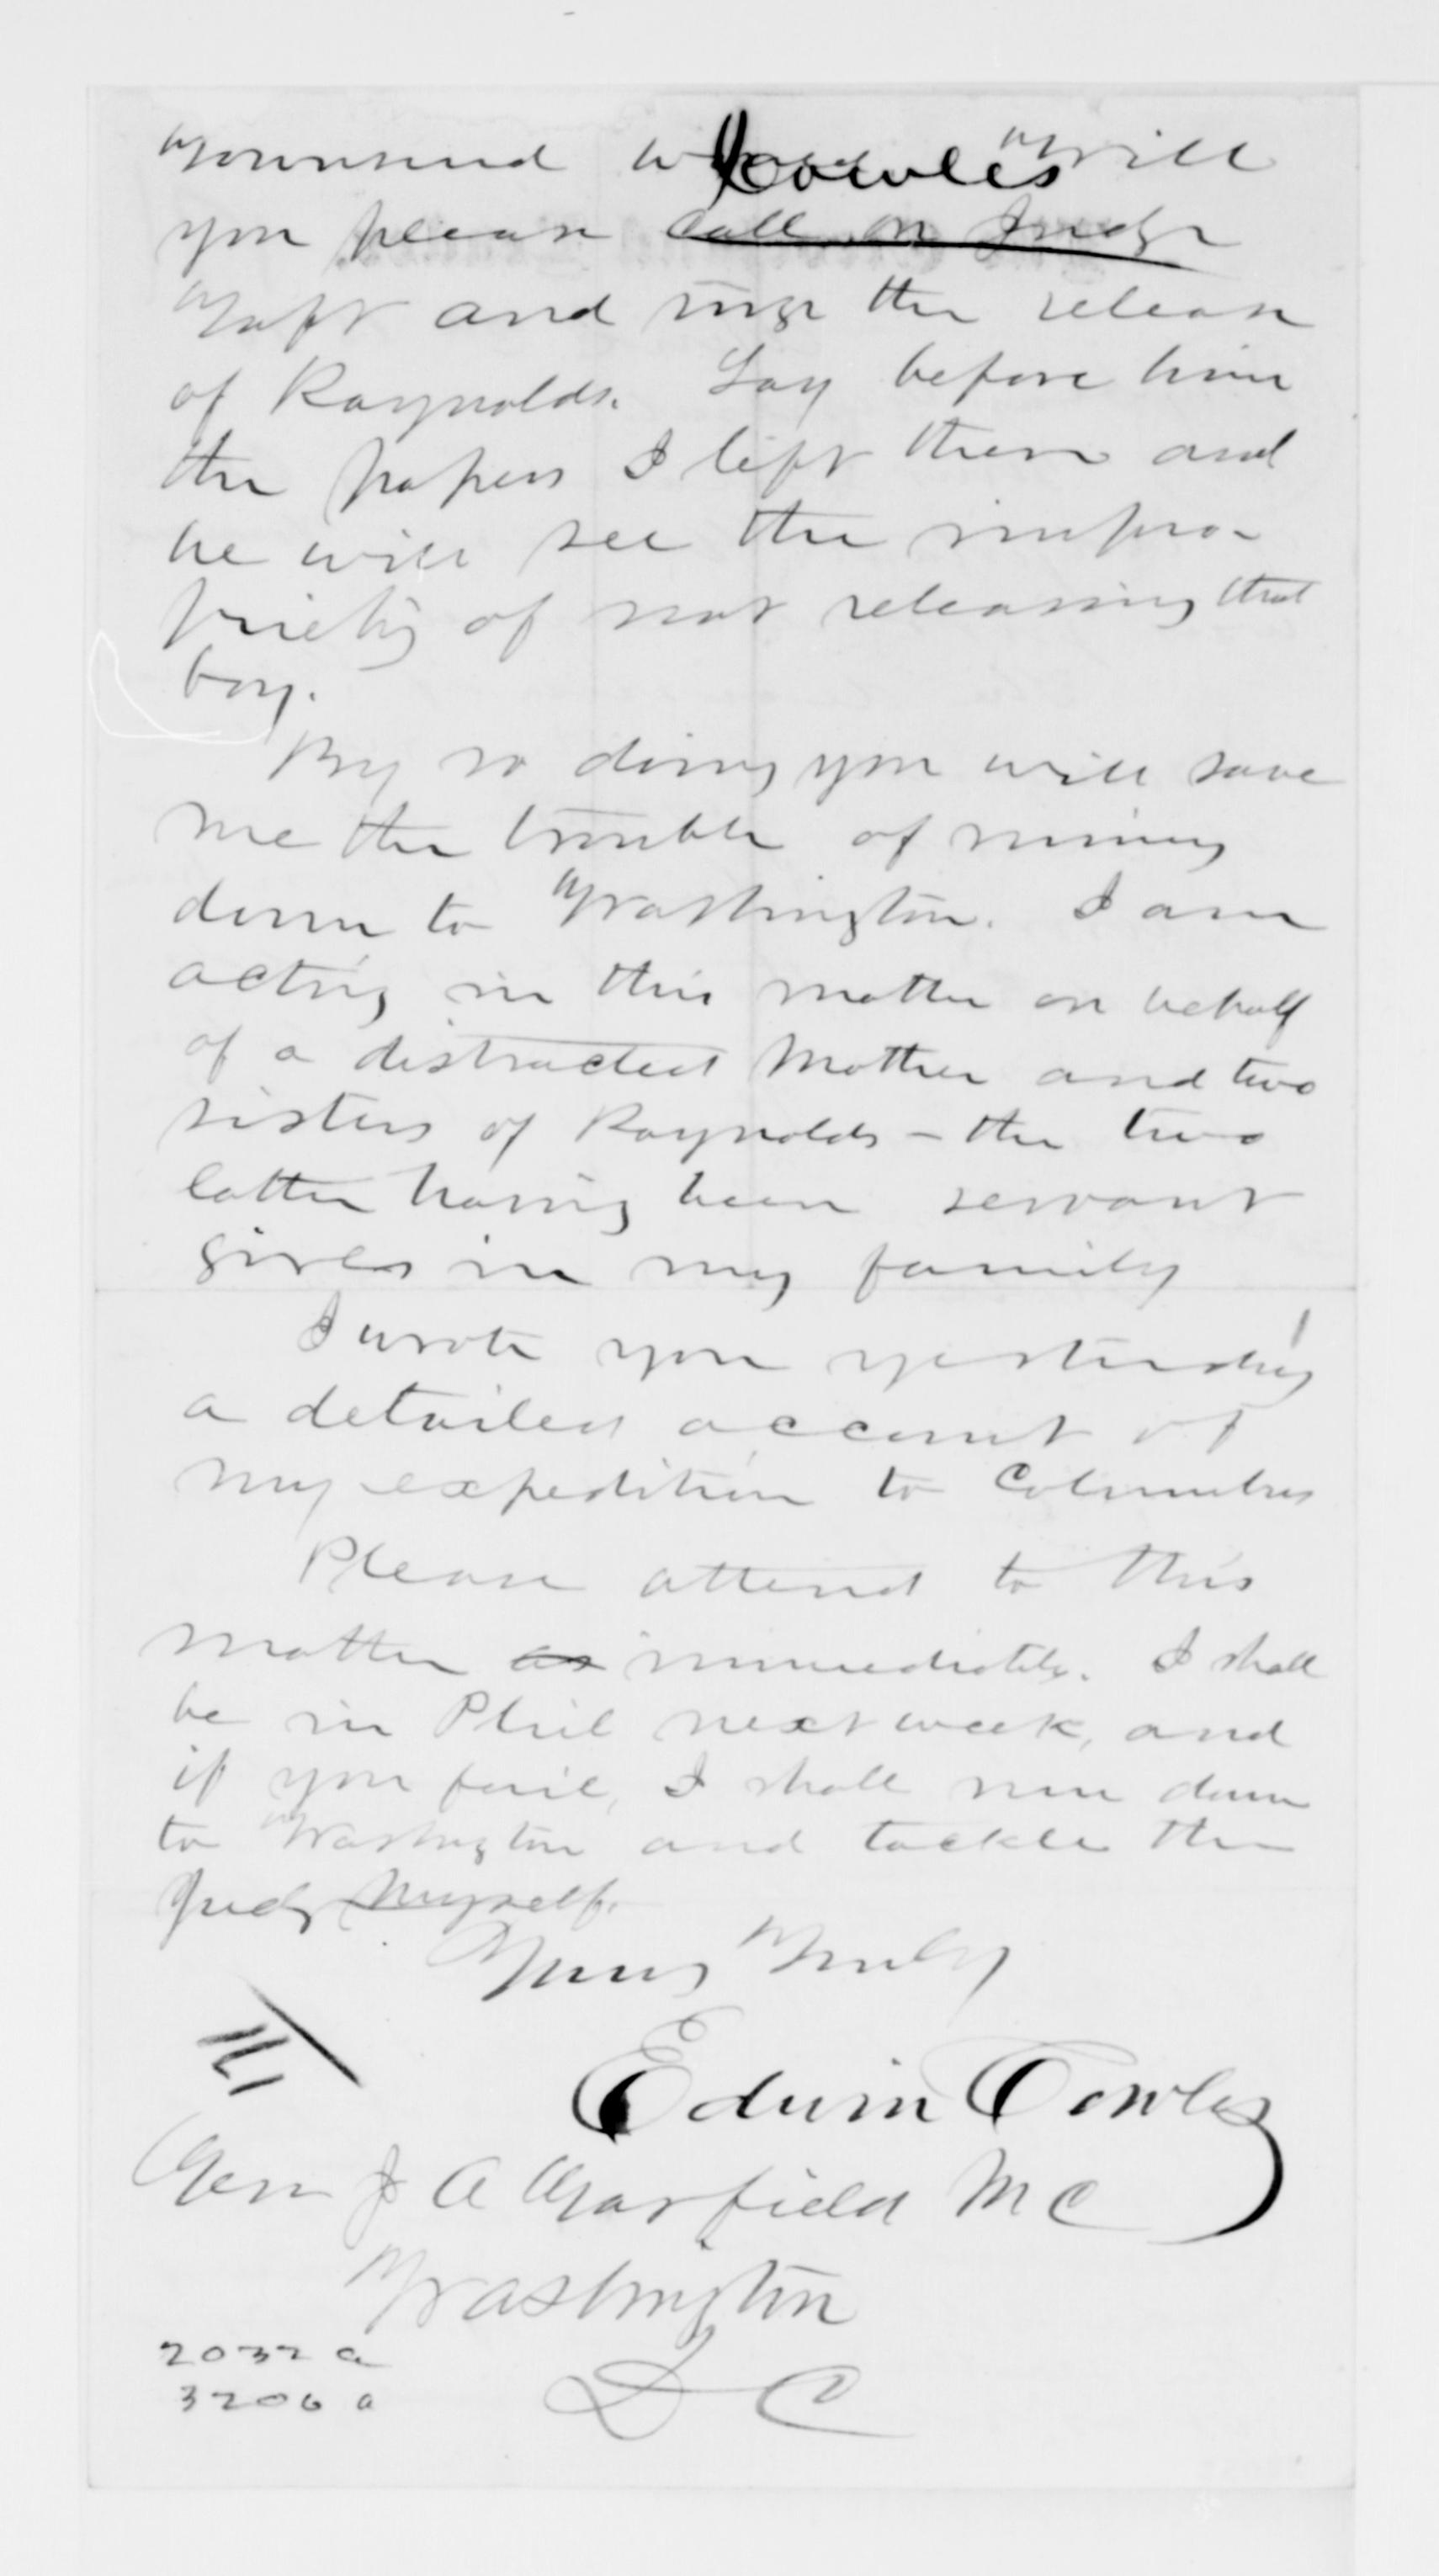 Townsend Cowles Will
you please call on Judge
Taft and urge the release
of Raynolds. Lay before him
the papers I left there and
he will see the impro-
priety of not releasing that
boy.
By so doing you will save
me the trouble of running
down to Washington. I am
acting in this matter on behalf
of a distracted Mother and two
sisters of Raynolds – the two
latter having been servant
girls in my family
I wrote you yesterday
a detailed account of
my expedition to Columbus
Please attend to this
matter as immediately. I shall
be in Phil next week, and
if you fail, I shall run down
to Washington and tackle the
Judg Myself.
Yours Truly
Edwin Cowles
Gen J A Garfield M C
Washington
D C
2032 a
3206 a